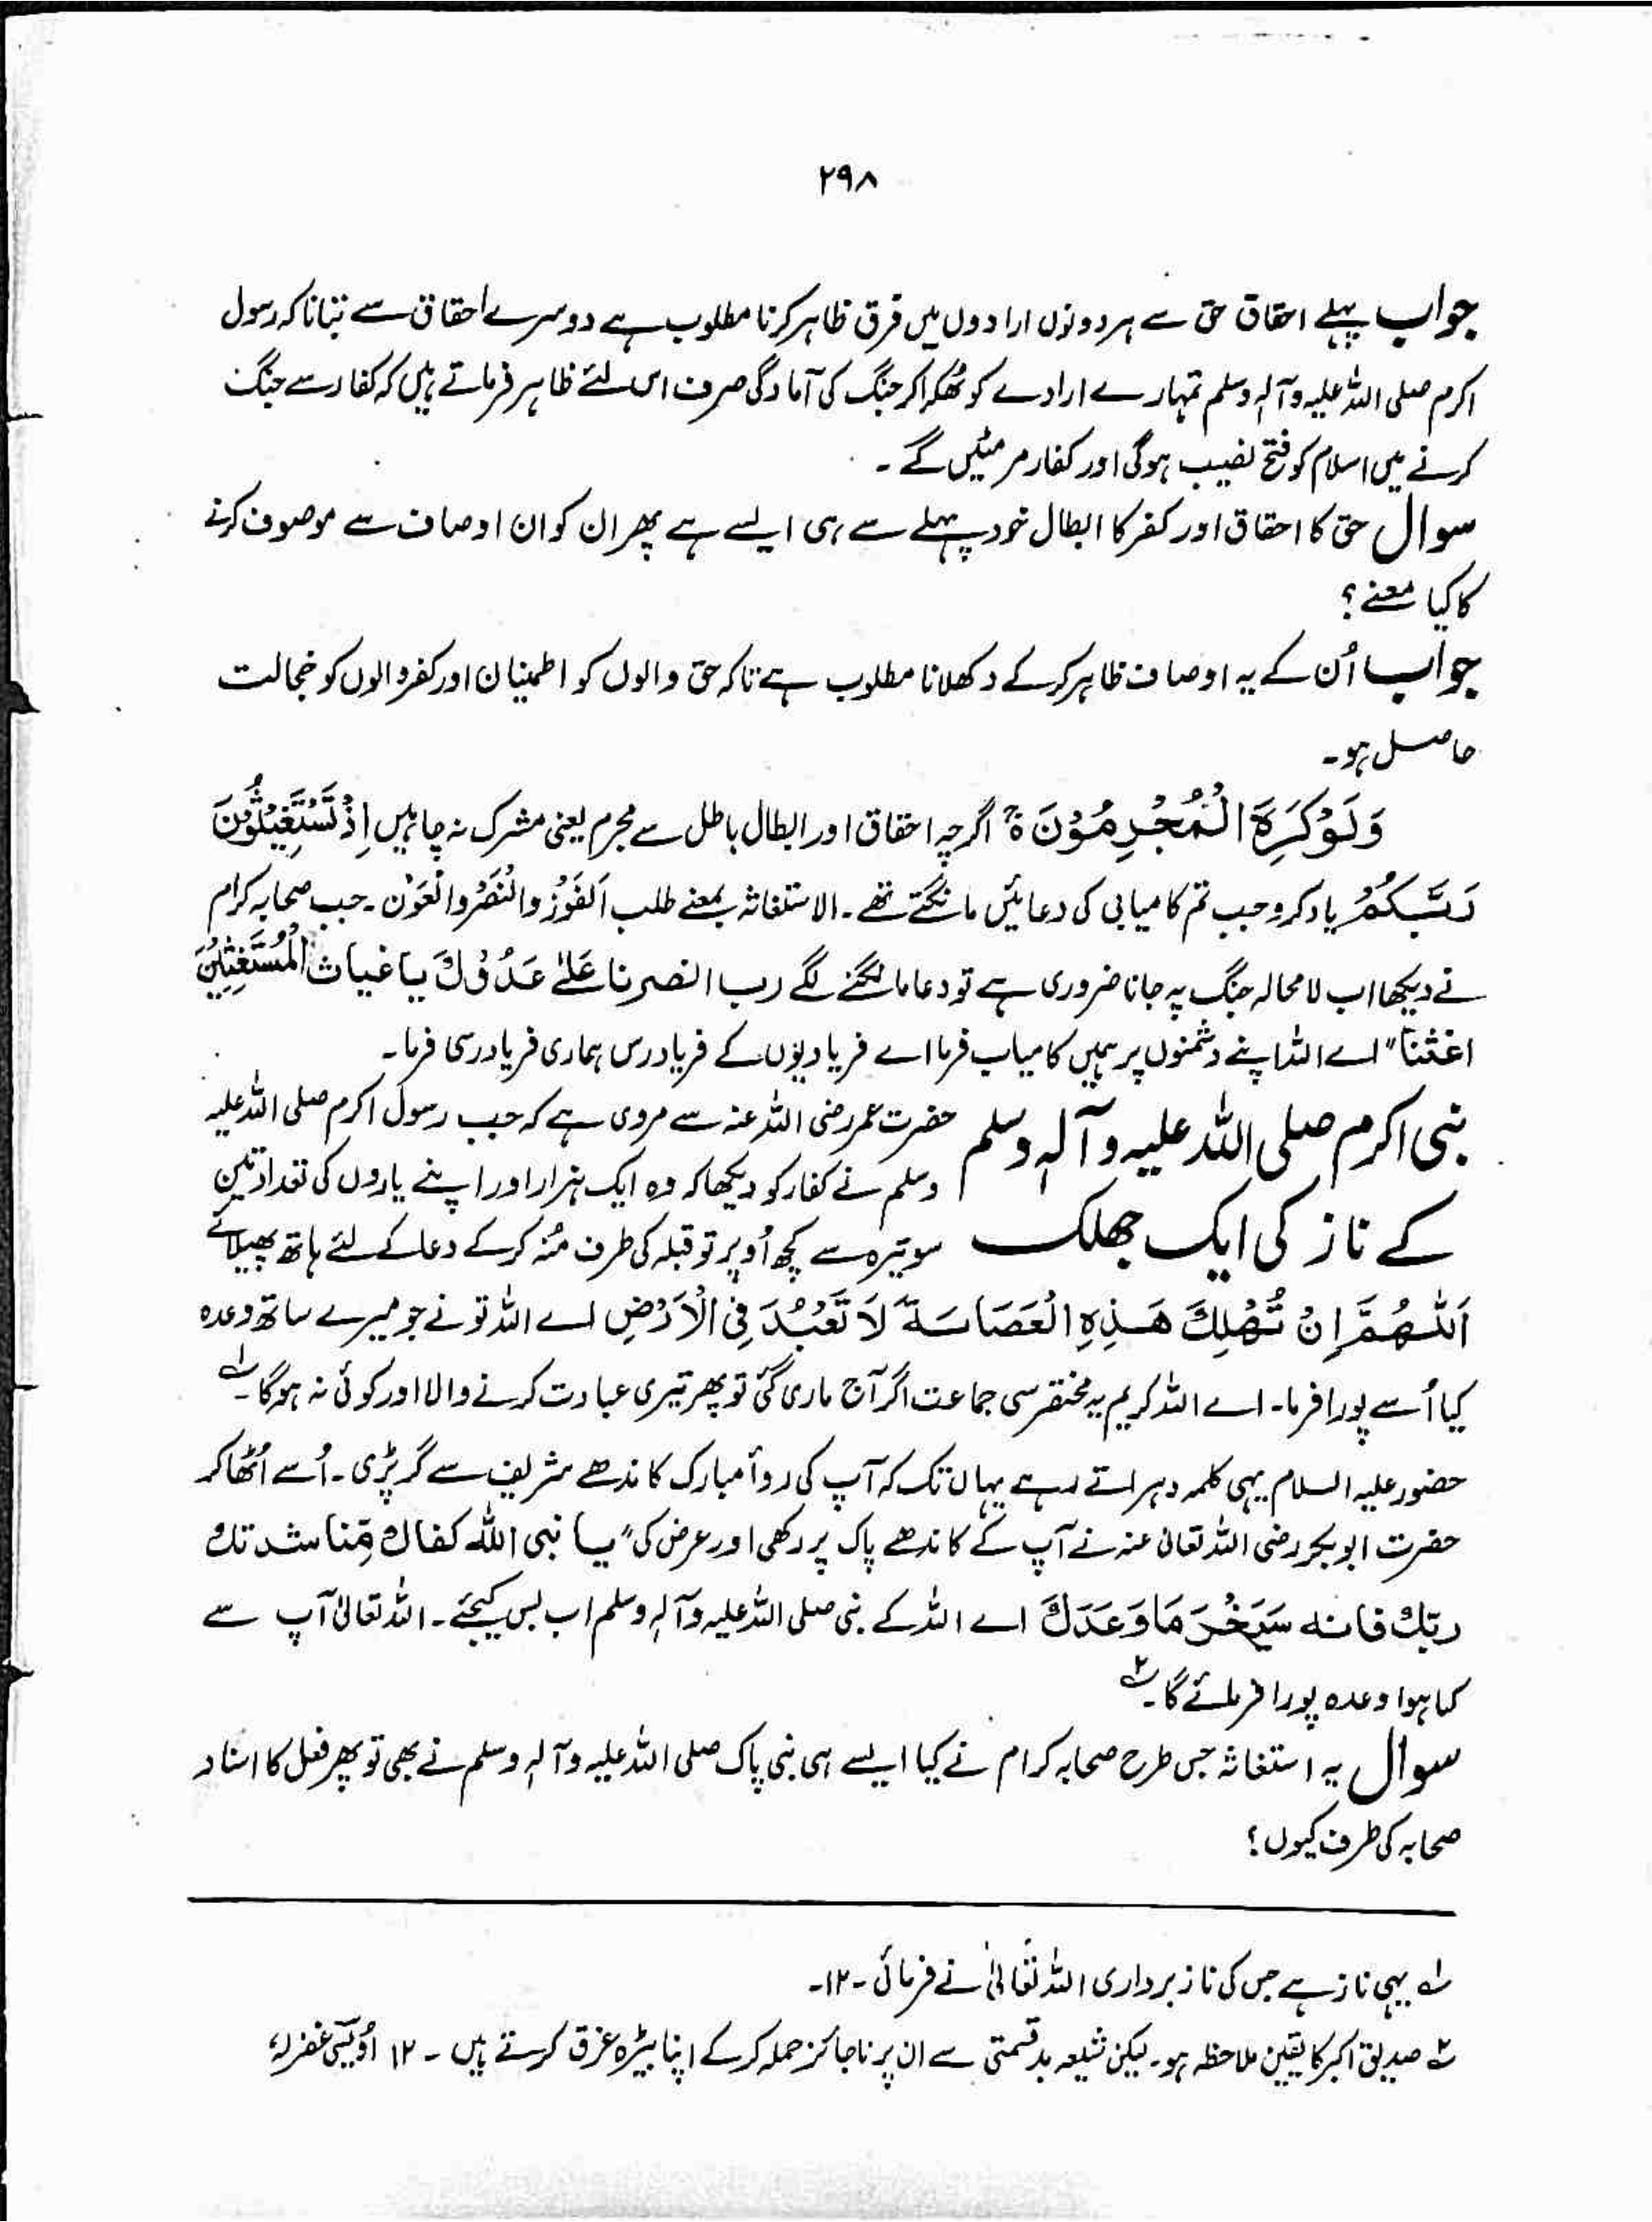 ۲۹۸
جواب پہلے احقاق حق سے ہر دونوں ارادوں میں فرق ظاہر کرنا مطلوب ہے دوسرے احقاق سے بتانا کہ رسول
اکرم صلی اللہ علیہ وآلہٖ وسلم تمہارے ارادے کو ٹھکرا کر جنگ کی آمادگی صرف اس لئے ظاہر فرماتے ہیں کہ کفار سے جنگ
کرنے میں اسلام کو فتح نصیب ہوگی اور کفار مر مٹیں گے ۔
سوال حق کا احقاق اور کفر کا ابطال خود پہلے سے ہی ایسے ہے پھر ان کو ان اوصاف سے موصوف کرنے
کا کیا معنے ؟
جواب اُن کے یہ اوصاف ظاہر کرکے دکھلانا مطلوب ہے تاکہ حق والوں کو اطمینان اور کفر والوں کو خجالت
حاصل ہو ۔
وَلَوْ كَرِهَ الْمُجْرِمُوْنَ ۃ اگرچہ احقاق اور ابطال باطل سے مجرم یعنی مشرک نہ چاہیں اِذْ تَسْتَغِيْثُوْنَ
رَبَّكُمْ یاد کرو جب تم کامیابی کی دعائیں مانگتے تھے ۔ الاستغاثہ بمعنے طلب اَلفَوْز والنُصَرْ والْعَوْن ۔ جب صحابہ کرام
نے دیکھا اب لامحالہ جنگ پہ جانا ضروری ہے تو دعا مانگنے لگے رب النصرنا عَلیٰ عَدُوِّكَ یا غیاث الْمُسْتَغِثِيْنَ
اغثنا" اے اللہ اپنے دشمنوں پر ہمیں کامیاب فرما اے فریادیوں کے فریادرس ہماری فریادرسی فرما ۔
نبی اکرم صلی اللہ علیہ وآلہٖ وسلم
کے ناز کی ایک جھلک
حضرت عمر رضی اللہ عنہ سے مروی ہے کہ جب رسول اکرم صلی اللہ علیہ
وسلم نے کفار کو دیکھا کہ وہ ایک ہزار اور اپنے یاروں کی تعداد تین
سو تیرہ سے کچھ اُوپر تو قبلہ کی طرف مُنہ کرکے دعا کے لئے ہاتھ پھیلائے
اَللّٰهُمَّ اِنْ تُهْلِكَ هَذِهِ الْعَصَابَةَ لَا تَعْبُدَ فِي الْاَرْضِ اے اللہ تو نے جو میرے ساتھ وعدہ
کیا اُسے پورا فرما ۔ اے اللہ کریم یہ مختصر سی جماعت اگر آج ماری گئی تو پھر تیری عبادت کرنے والا اور کوئی نہ ہوگا ۔ لہ
حضور علیہ السلام یہی کلمہ دہراتے رہے یہاں تک کہ آپ کی رداٴ مبارک کاندھے شریف سے گر پڑی ۔ اُسے اُٹھا کر
حضرت ابوبکر رضی اللہ تعالیٰ عنہ نے آپ کے کاندھے پاک پر رکھی اور عرض کی" یا نبی اللہ کفاك مِّنا شدتك
ربّك فانه سَيَخُرَ مَا وَعَدَكَ اے اللہ کے نبی صلی اللہ علیہ وآلہٖ وسلم اب بس کیجئے ۔ اللہ تعالیٰ آپ سے
کیا ہوا وعدہ پورا فرمائے گا ۔ ۲ہ
سوال یہ استغاثہ جس طرح صحابہ کرام نے کیا ایسے ہی نبی پاک صلی اللہ علیہ وآلہٖ وسلم نے بھی تو پھر فعل کا اسناد
صحابہ کی طرف کیوں ؟
لہ یہی ناز ہے جس کی ناز برداری اللہ تعالیٰ نے فرمائی ۔ ۱۲ ۔
۲ہ صدیق اکبر کا یقین ملاحظہ ہو ۔ لیکن شیعہ بدقسمتی سے ان پر ناجائز حملہ کرکے اپنا بیڑہ غرق کرتے ہیں ۔ ۱۲ اُویسی غفرلہٗ